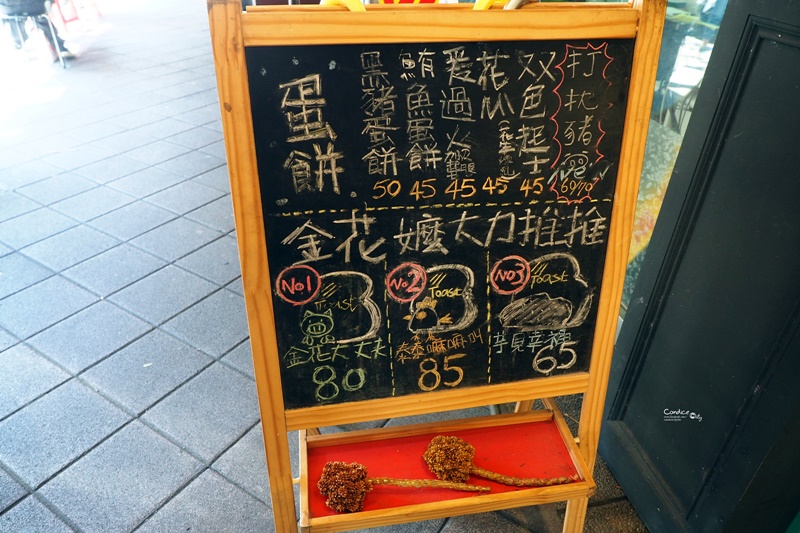 蛋餅
黑豬蛋餅 50
鮪魚蛋餅 45
愛過火 45
花瓜 45
双色起士 45
打抛豬 69/79
金花嬤大力推推
No1
Toast
金花大丈夫
80
No2
Toast
泰泰嘛嘛叫
85
No3
Toast
芋見幸褔
65
Candice